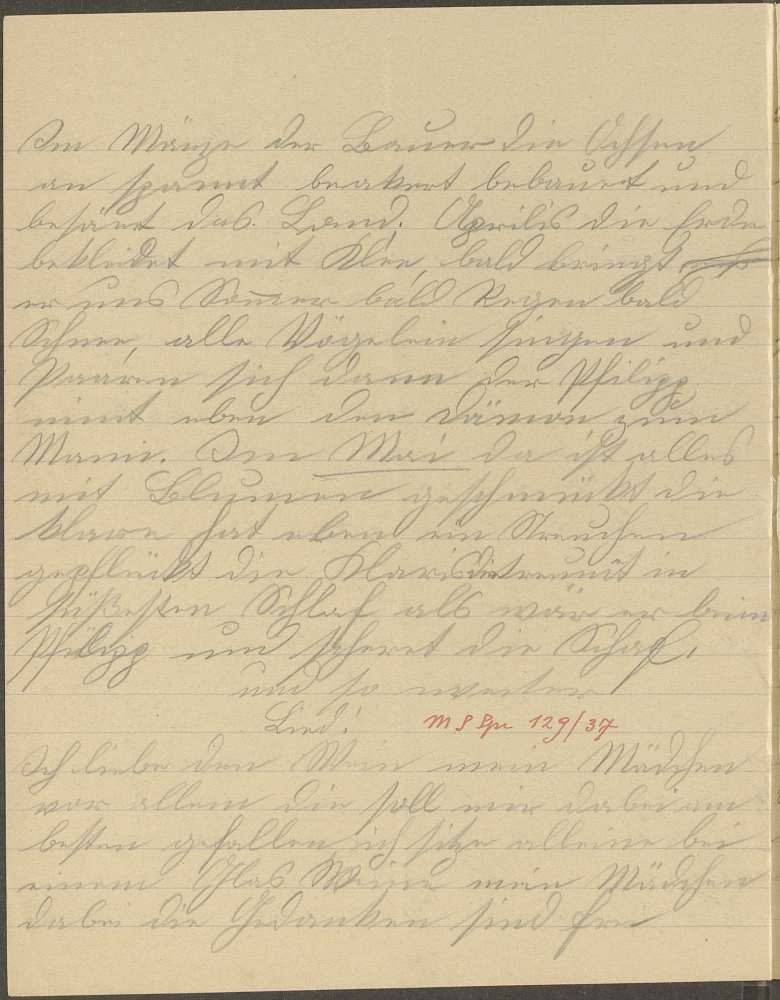 Im Märze der Bauer die Ochsen
an spannt beakert bebauet und
besäet das Land. Aprilis die Erde
bekleidet mit Klee, bald bringt
er uns Sommer bald Regen bald
Schnee, alle Vögelein singen und
Paaren sich dann der Philipp
nimt eben den Dämon zum
Mann. Im Mai da ist alles
mit Blumen geschmückt die
klare hat eben ein Streuchen
gepflückt die Klaris in
süßesten Schlaf als wär er beim
Philipp und scheret die Schaf,
und so weiter
Lied! M S 129/37
Ich liebe den Wein mein Mädchen
vor allem die soll mir dabei am
besten gefallen ich sitze alleine bei
einem Glas Weine mein Mädchen
dabei die Gedanken sind frei